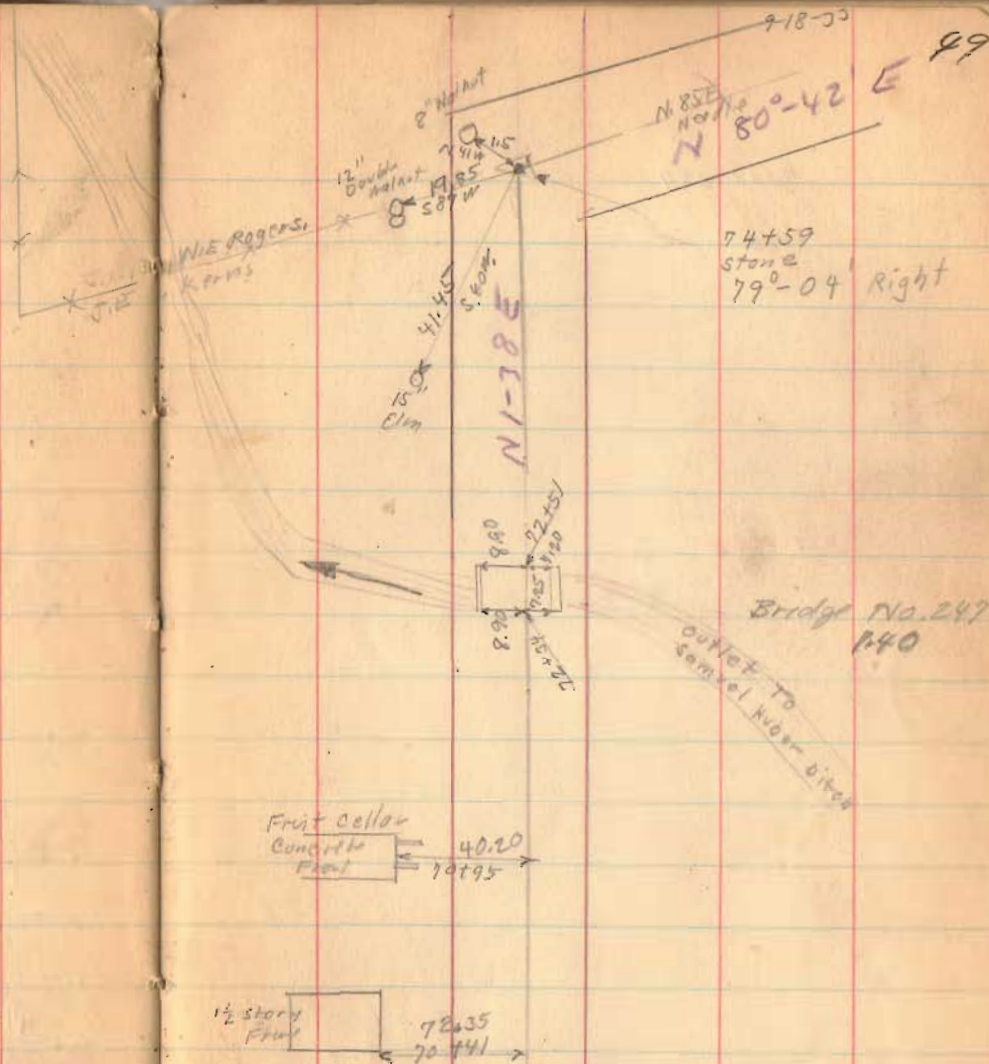 9-18-33
49
8" Walnut
N 85 E
N 80°-42 E
N 41 W
11.5
12"
Double
Walnut
19.85
S 87 W
W.E Rogers.
Kerns
J.E
74+59
stone
79°-04' Right
41.45
S. 40 W.
N 1-38 E
15"
Elm
8.90
72+51
7.20
8.90
7.25
72+34
Bridge No. 247
P.40
Outlet To
Samuel Huber Ditch
Fruit Cellar
Concrete
Front
40.20
70+95
1½ story
Frame
72.35
70+41